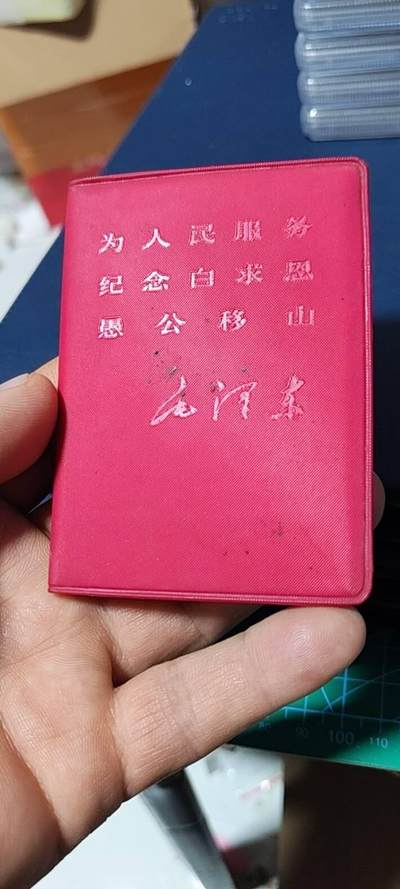 为人民服务
纪念白求恩
愚公移山
毛泽东
90 100 110